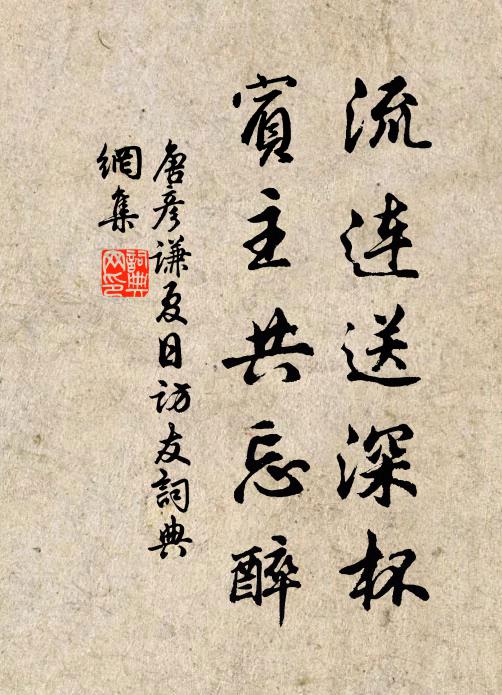 流连送深杯
賓主共忘醉
唐彦谦夏日访友詞典
網集
詞典
网印